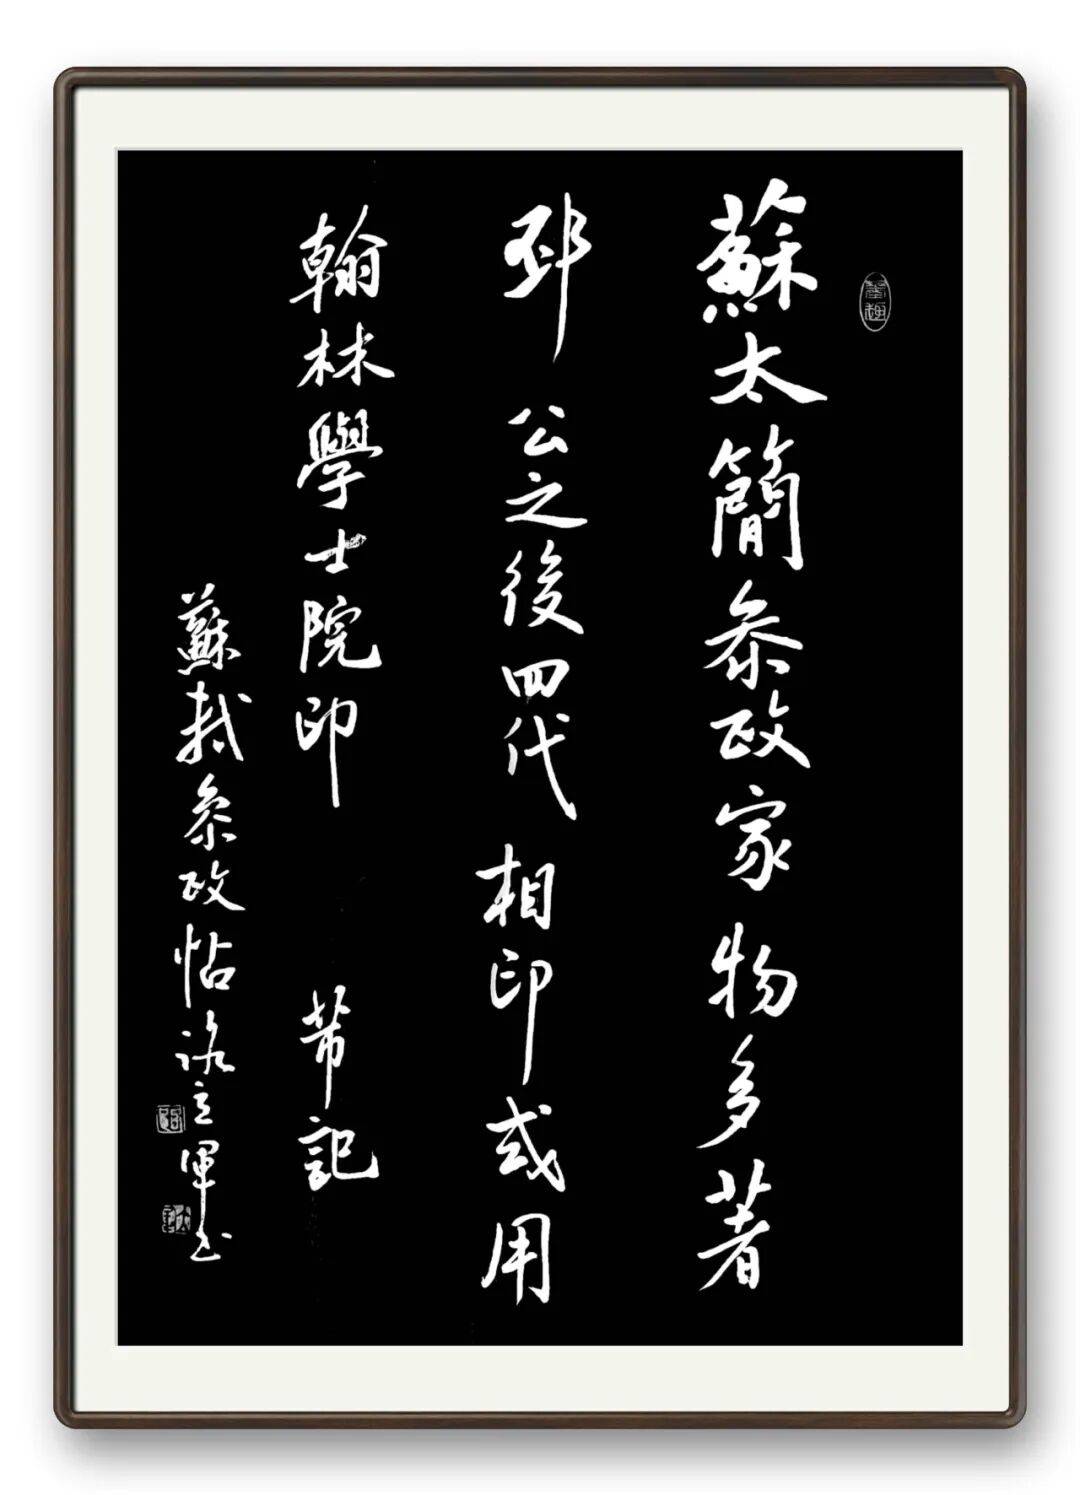 蘇太簡參政家物多著
邳公之後四代相印或用
翰林學士院印 芾記
蘇軾參政帖 立軍书